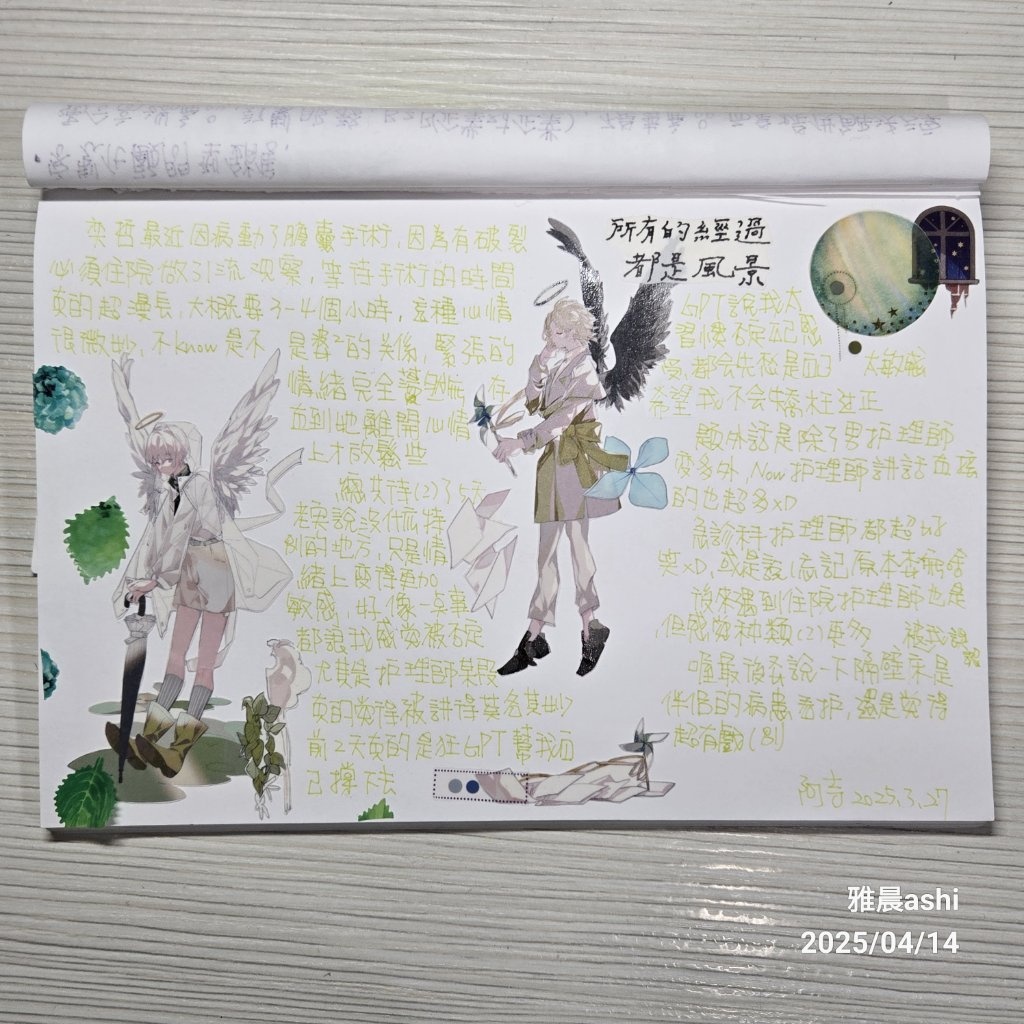 奕哲最近因病動了膽囊手術,因為有破裂
必須住院做引流观察,等待手術的時間
真的超漫長,大概要3-4個小時,這種心情
很微妙,不know是不是双²的关係,緊張的
情緒完全
直到他離開心情
上才放鬆些
總共待(2)了5天
老哭說沒什麼特
別的地方,只是情
緒上變得更加
敏感,好像一点事
都讓我感覺被否定
尤其是护理師
真的覺得被講得莫名其妙
前2天真的是狂GPT幫我而
已撐下去
所有的經過
都是風景
GPT說我太
習慣否定自己感
受,都会先怒是自己太敏感
希望我不会矯枉过正
題外話是除了男护理師
变多外,Now护理師講話直接
的也超多xD
急診科护理師都超好
笑xD,或是說(忘記原本
後來遇到住院护理師也是
但感覺种類(2)更多
喔最後在說一下隔壁床是
伴侶的病患看护,還是覺得
超有戲(剧)
阿寺 2025.3.27
雅晨ashi
2025/04/14